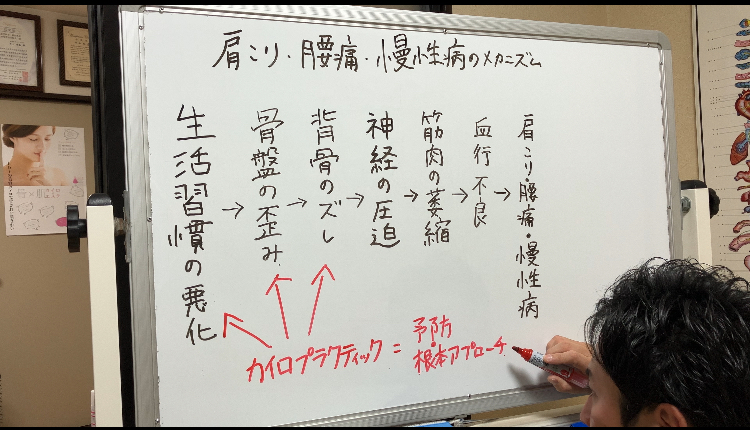 肩こり・腰痛・慢性病のメカニズム
生活習慣の悪化
→
骨盤の歪み
→
背骨のズレ
→
神経の圧迫
→
筋肉の萎縮
→
血行不良
→
肩こり・腰痛・慢性病
カイロプラクティック = 予防・根本アプローチ